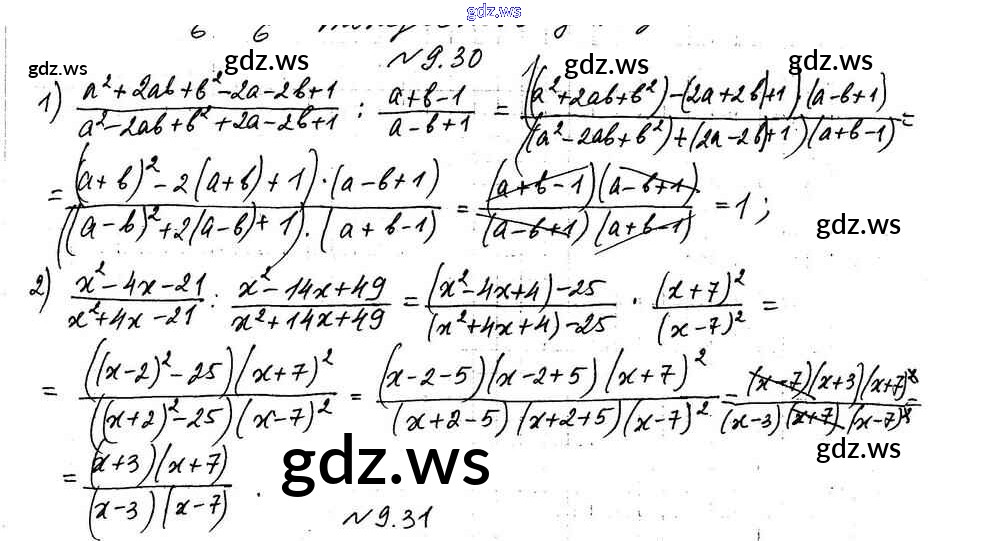 gdz.ws
№ 9.30
gdz.ws gdz.ws gdz.ws gdz.ws
1) (a²+2ab+b²-2a-2b+1)/(a²-2ab+b²+2a-2b+1) : (a+b-1)/(a-b+1) = ((a²+2ab+b²)-(2a+2b)+1)·(a-b+1)/((a²-2ab+b²)+(2a-2b)+1)(a+b-1) =
= ((a+b)²-2(a+b)+1)·(a-b+1)/((a-b)²+2(a-b)+1)·(a+b-1) = (a+b-1)(a-b+1)/(a-b+1)(a+b-1) = 1;
gdz.ws
2) (x²-4x-21)/(x²+4x-21) : (x²-14x+49)/(x²+14x+49) = ((x²-4x+4)-25)/((x²+4x+4)-25) · (x+7)²/(x-7)² =
= ((x-2)²-25)(x+7)²/((x+2)²-25)(x-7)² = (x-2-5)(x-2+5)(x+7)²/(x+2-5)(x+2+5)(x-7)² = (x-7)(x+3)(x+7)²/(x-3)(x+7)(x-7)² =
gdz.ws gdz.ws
= (x+3)(x+7)/(x-3)(x-7).
№ 9.31